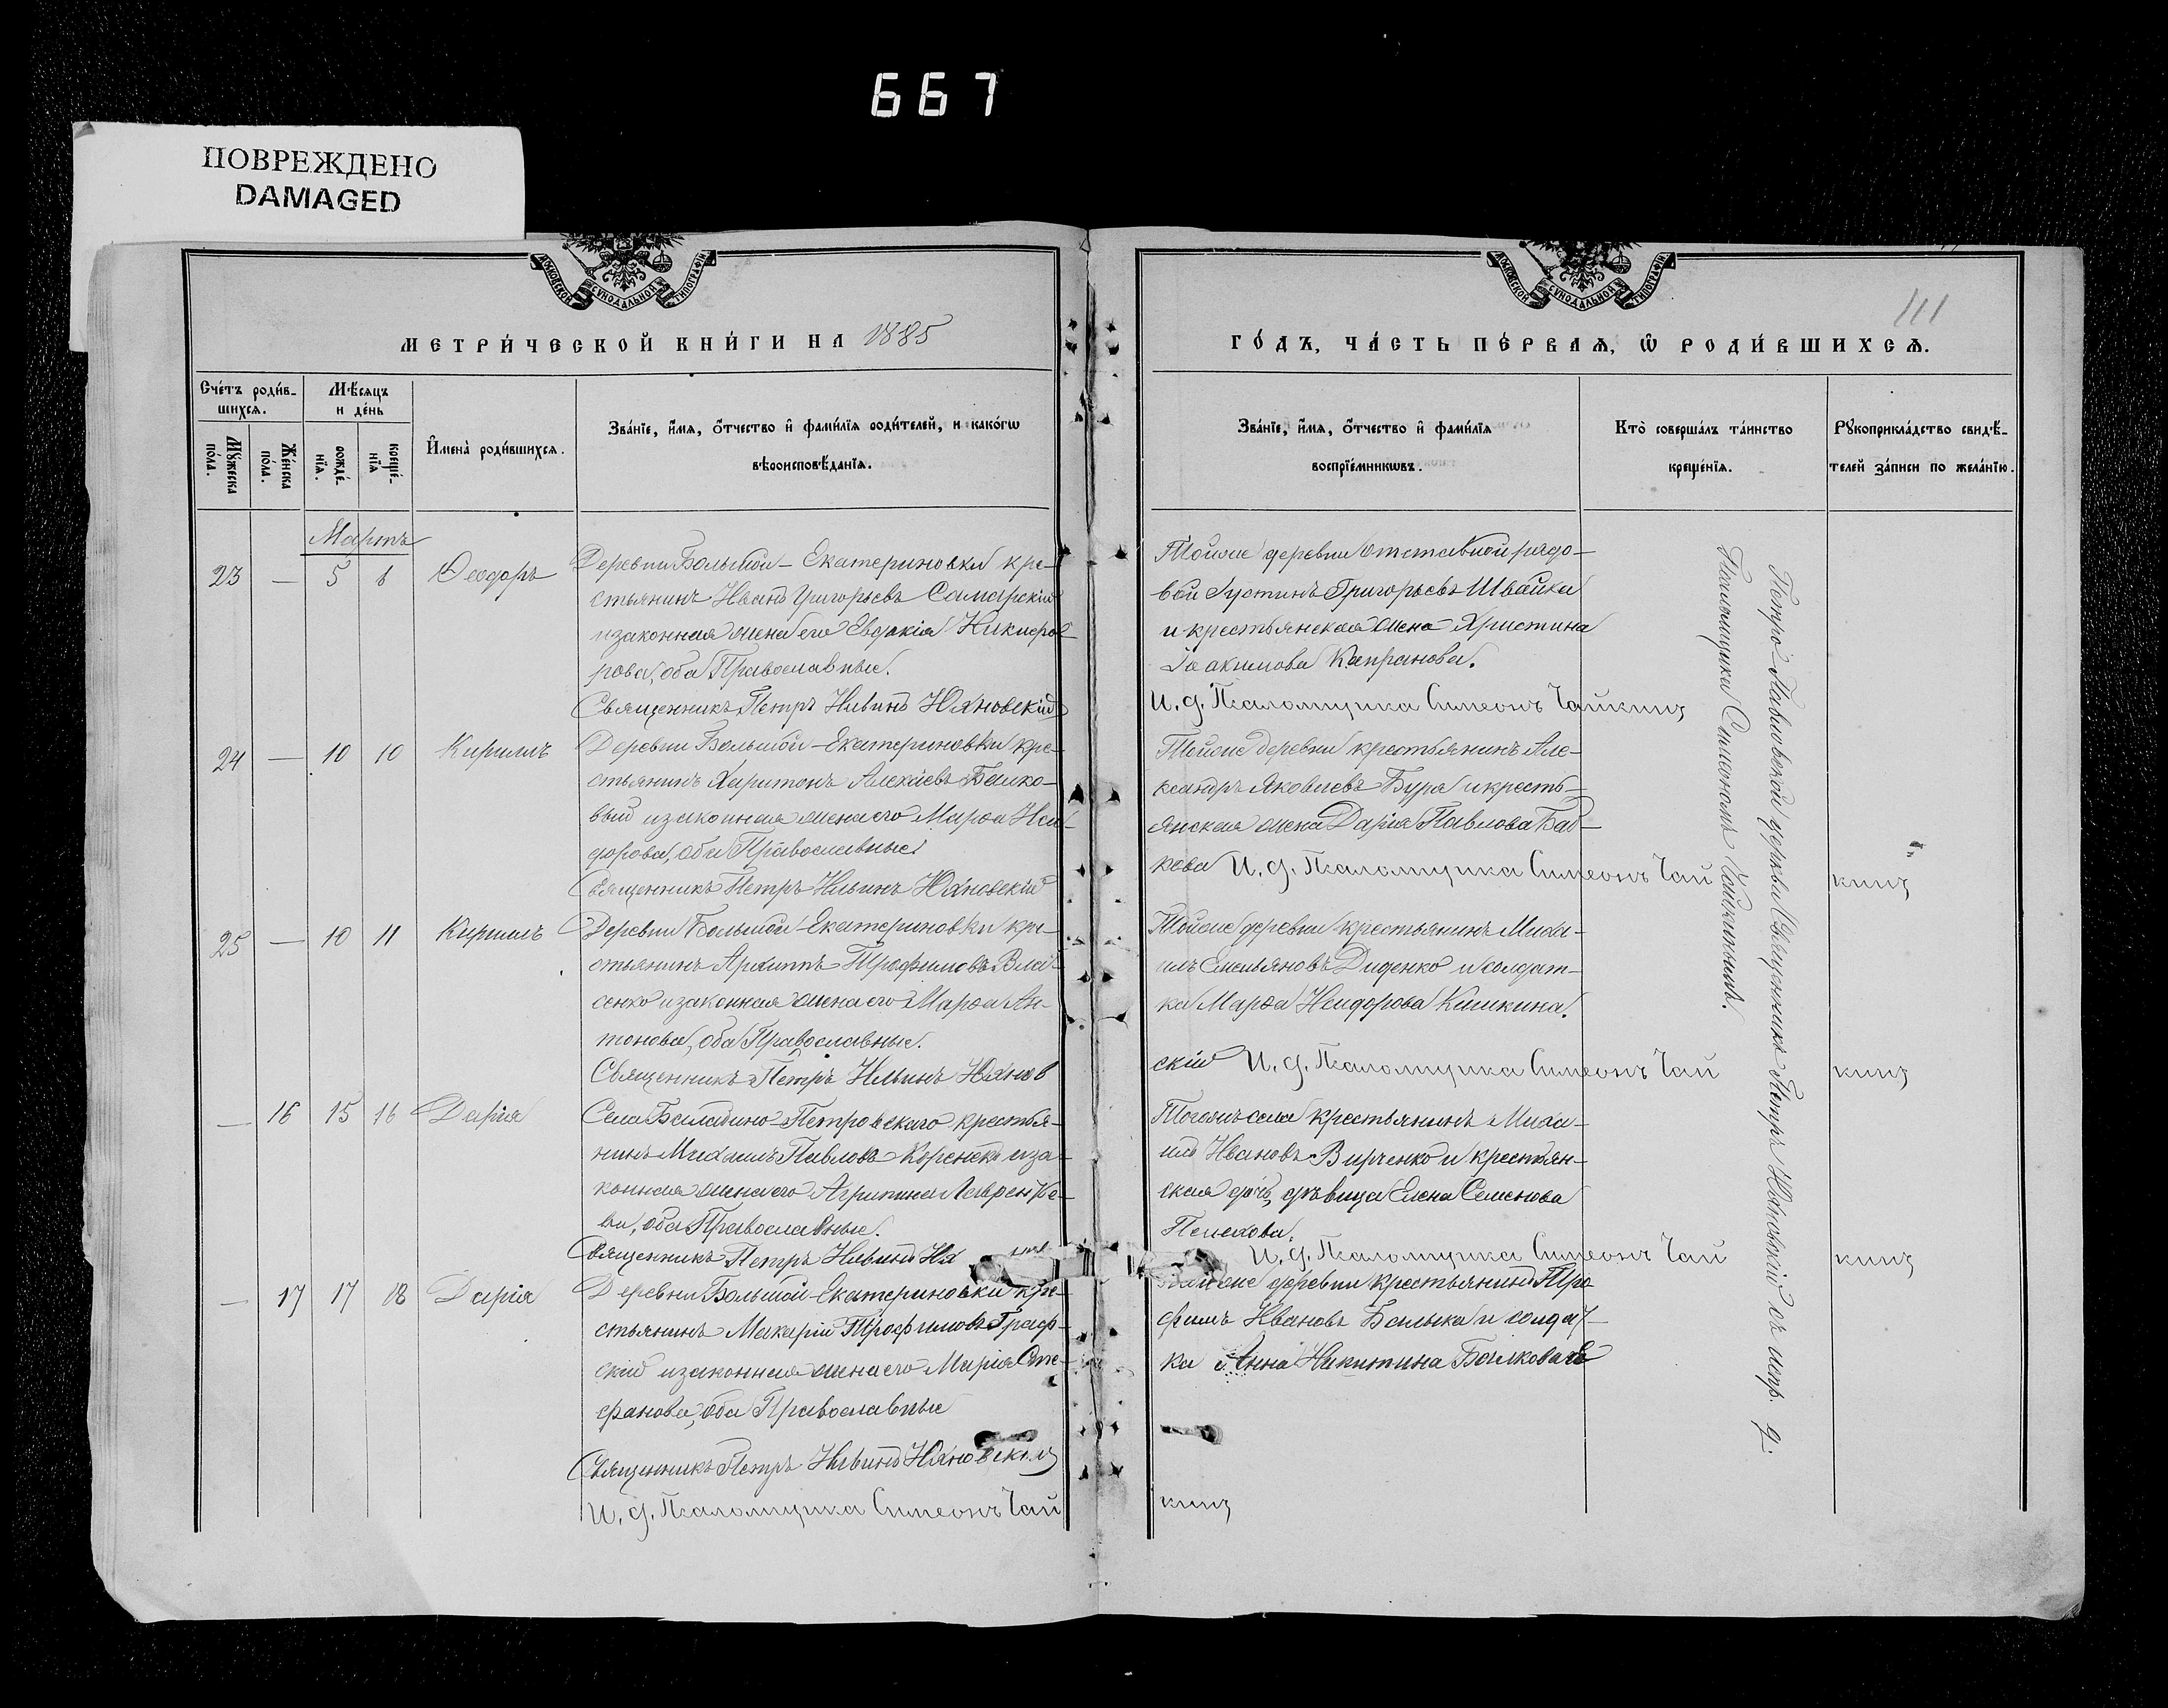 667
ПОВРЕЖДЕНО
DAMAGED
МОСКОВСКОЙ СУНОДАЛЬНОЙ ТИПОГРАФІИ
МОСКОВСКОЙ СУНОДАЛЬНОЙ ТИПОГРАФІИ
111
МЕТРИ́ЧЕСКОЙ КНИ́ГИ НА 1885
ГО́ДЪ, ЧА́СТЬ ПЕ́РВАѦ, Ѡ РОДИ́ВШИХСѦ.
Сче́тъ роди́в-
шихсѧ.
Мѣ́сѧцъ
и де́нь
Мꙋжеска
по́ла.
Же́нска
по́ла.
рожде́-
нїѧ.
креще́-
нїѧ
И҆мена̀ роди́вшихсѧ.
Зва́нїе, и҆́мѧ, ѻ҆́тчество и҆ фами́лїѧ роди́телей, и како́гѡ
вѣроисповѣ́данїѧ.
Зва́нїе, и҆́мѧ, ѻ҆́тчество и҆ фами́лїѧ
воспрїе́мникѡвъ.
Кто̀ соверша́лъ та́инство
креще́нїѧ.
Рꙋкоприкла́дство свидѣ́-
телей за́писи по жела́нїю.
Мартъ
23 — 5 6 Ѳеодоръ
Деревни Большой-Екатериновки кре-
стьянинъ Иванъ Григорьевъ Самарскій
и законная жена его Евдокія Никифо-
рова, оба Православные.
Священникъ Петръ Ильинъ Юхновскій
Тойже деревни отставной рядо-
вой Іустинъ Григорьевъ Швайка
и крестьянская жена Христина
Іоакимова Капранова.
И. д. Псаломщика Симеонъ Чайкинъ
24 — 10 10 Кириллъ
Деревни Большой-Екатериновки кре-
стьянинъ Харитонъ Алексіевъ
вый и законная жена его Марѳа Иси-
дорова, оба Православные.
Священникъ Петръ Ильинъ Юхновскій
Тойже деревни крестьянинъ Але-
ксандръ Яковлевъ Бура и кресть-
янская жена Дарія Павлова Баб-
кова И. д. Псаломщика Симеонъ Чайкинъ
25 — 10 11 Кириллъ
Деревни Большой-Екатериновки кре-
стьянинъ Архиппъ Трофимовъ Вла-
сенко и законная жена его Марѳа Ан-
тонова, оба Православные.
Священникъ Петръ Ильинъ Юхнов
Тойже деревни крестьянинъ Миха-
илъ Емельяновъ Диденко и солдат-
ка Марѳа Исидорова Кишкина.
скій И. д. Псаломщика Симеонъ Чайкинъ
— 16 15 16 Дарія
Села Балабино-Петровскаго крестья-
нинъ Михаилъ Павловъ и за-
конная жена его Агрипина Лаврентіе-
ва, оба Православные.
Священникъ Петръ Ильинъ Юх
Тогожъ села крестьянинъ Миха-
илъ Ивановъ Вирченко и крестьян-
ская дочь, дѣвица Елена Семенова
И. д. Псаломщика Симеонъ Чайкинъ
— 17 17 18 Дарія
Деревни Большой-Екатериновки кре-
стьянинъ Макарій Трофимовъ Граф-
скій и законная жена его Марія Сте-
фанова, оба Православные
Священникъ Петръ Ильинъ Юхновскій
И. д. Псаломщика Симеонъ Чайкинъ
Тойже деревни крестьянинъ Тро
фимъ Ивановъ Балыка и солдат-
ка Анна Никитина
Петро-Павловской церкви Священникъ Петръ Юхновскій съ испр. д.
Псаломщика Симеономъ Чайкинымъ.